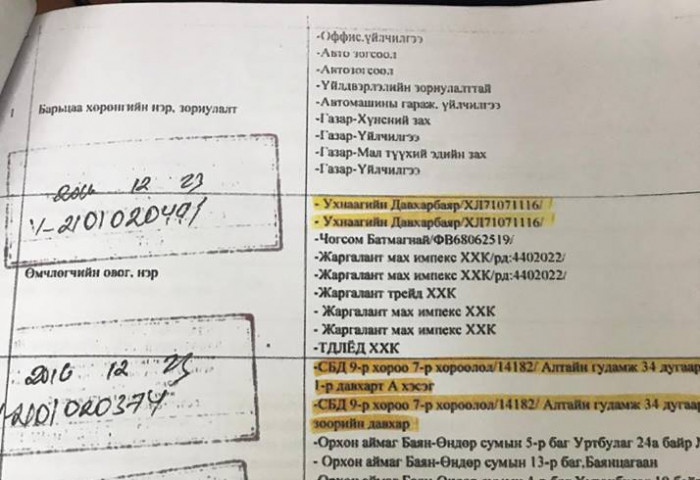 -Оффис.үйлчилгээ
-Авто зогсоол
-Автозогсоол
-Үйлдвэрлэлийн зориулалттай
-Автомашины гараж, үйлчилгээ
1 Барьцаа хөрөнгийн нэр, зориулалт
-Газар-Хүнсний зах
-Газар-Үйлчилгээ
-Газар-Мал түүхий эдийн зах
-Газар-Үйлчилгээ
2016 12 23
- Ухнаагийн Давхарбаяр/ХЛ71071116/
- Ухнаагийн Давхарбаяр/ХЛ71071116/
-Чогсом Батмагнай/ФВ68062519/
-Жаргалант мах импекс ХХК/рд:4402022/
Өмчлөгчийн овог, нэр
-Жаргалант мах импекс ХХК/рд:4402022/
-Жаргалант трейд ХХК
- Жаргалант мах импекс ХХК
- Жаргалант мах импекс ХХК
-ТДЛЁД ХХК
2016 12 23
-2101020374
-СБД 9-р хороо 7-р хороолол/14182/ Алтайн гудамж 34 дугаар
1-р давхарт А хэсэг
-СБД 9-р хороо 7-р хороолол/14182/ Алтайн гудамж 34 дугаар
зоорийн давхар
-Орхон аймаг Баян-Өндөр сумын 5-р баг Уртбулаг 24а байр
- Орхон аймаг Баян-Өндөр сумын 13-р баг,Баянцагаан